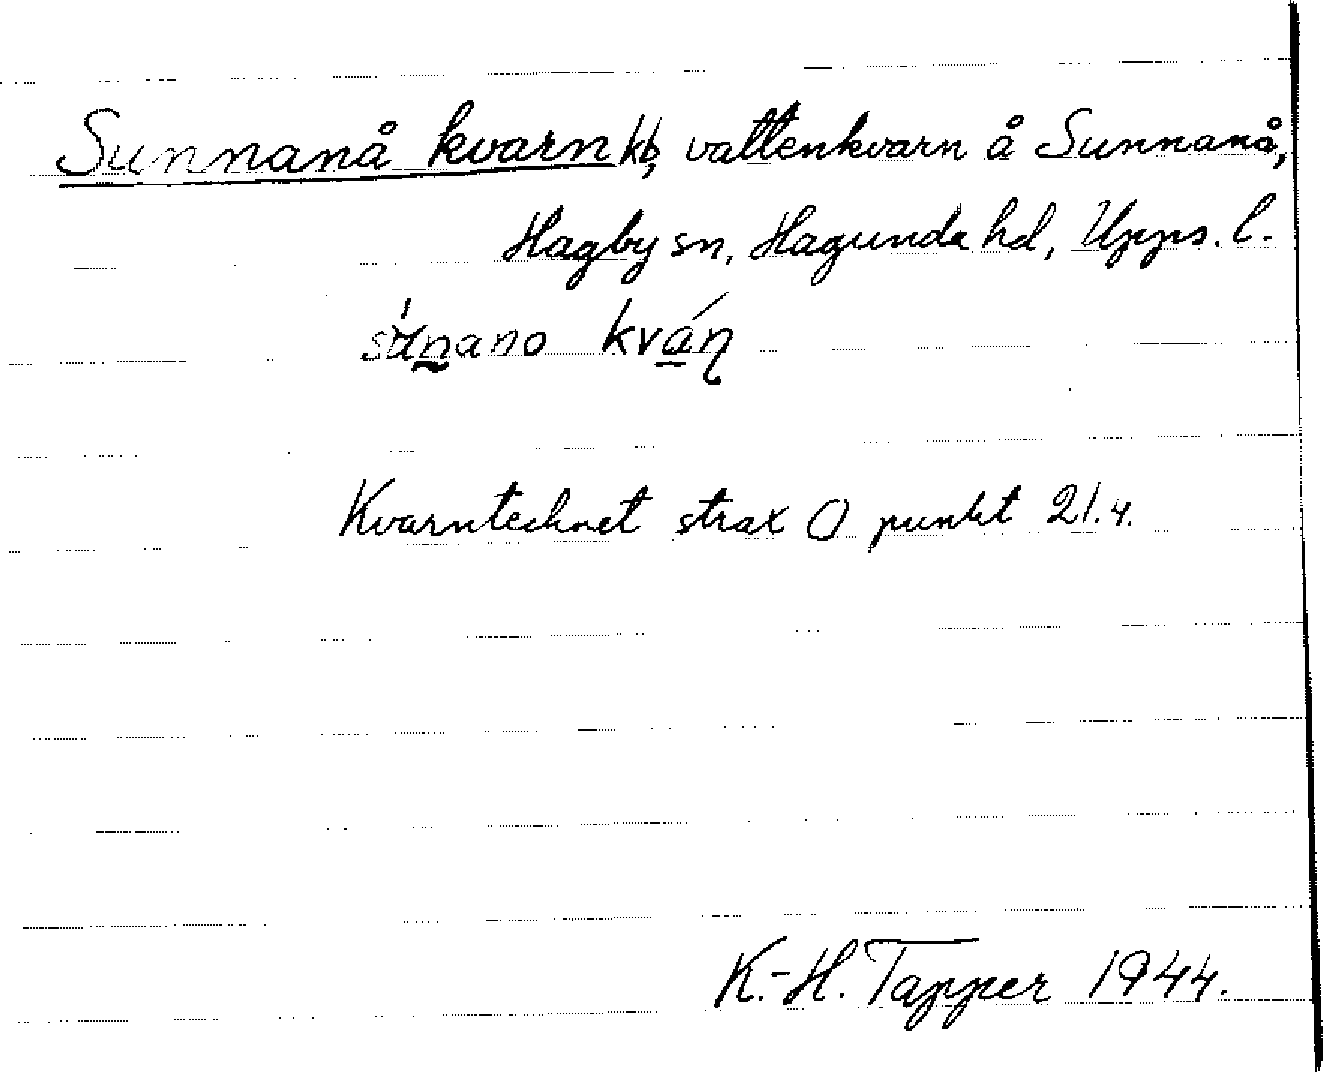 Sunnanå kvarn kb, vattenkvarn å Sunnanå,
Hagby sn, Hagunda hd, Upps. l.
kván
Kvarntecknet strax O punkt 21.4.
K.-H. Tapper 1944.